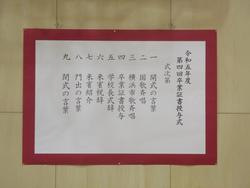 令和五年度
第四回卒業証書授与式
式次第
一 開式の言葉
二 国歌斉唱
三 横浜市歌斉唱
四 卒業証書授与
五 学校長式辞
六 来賓祝辞
七 来賓紹介
八 門出の言葉
九 閉式の言葉